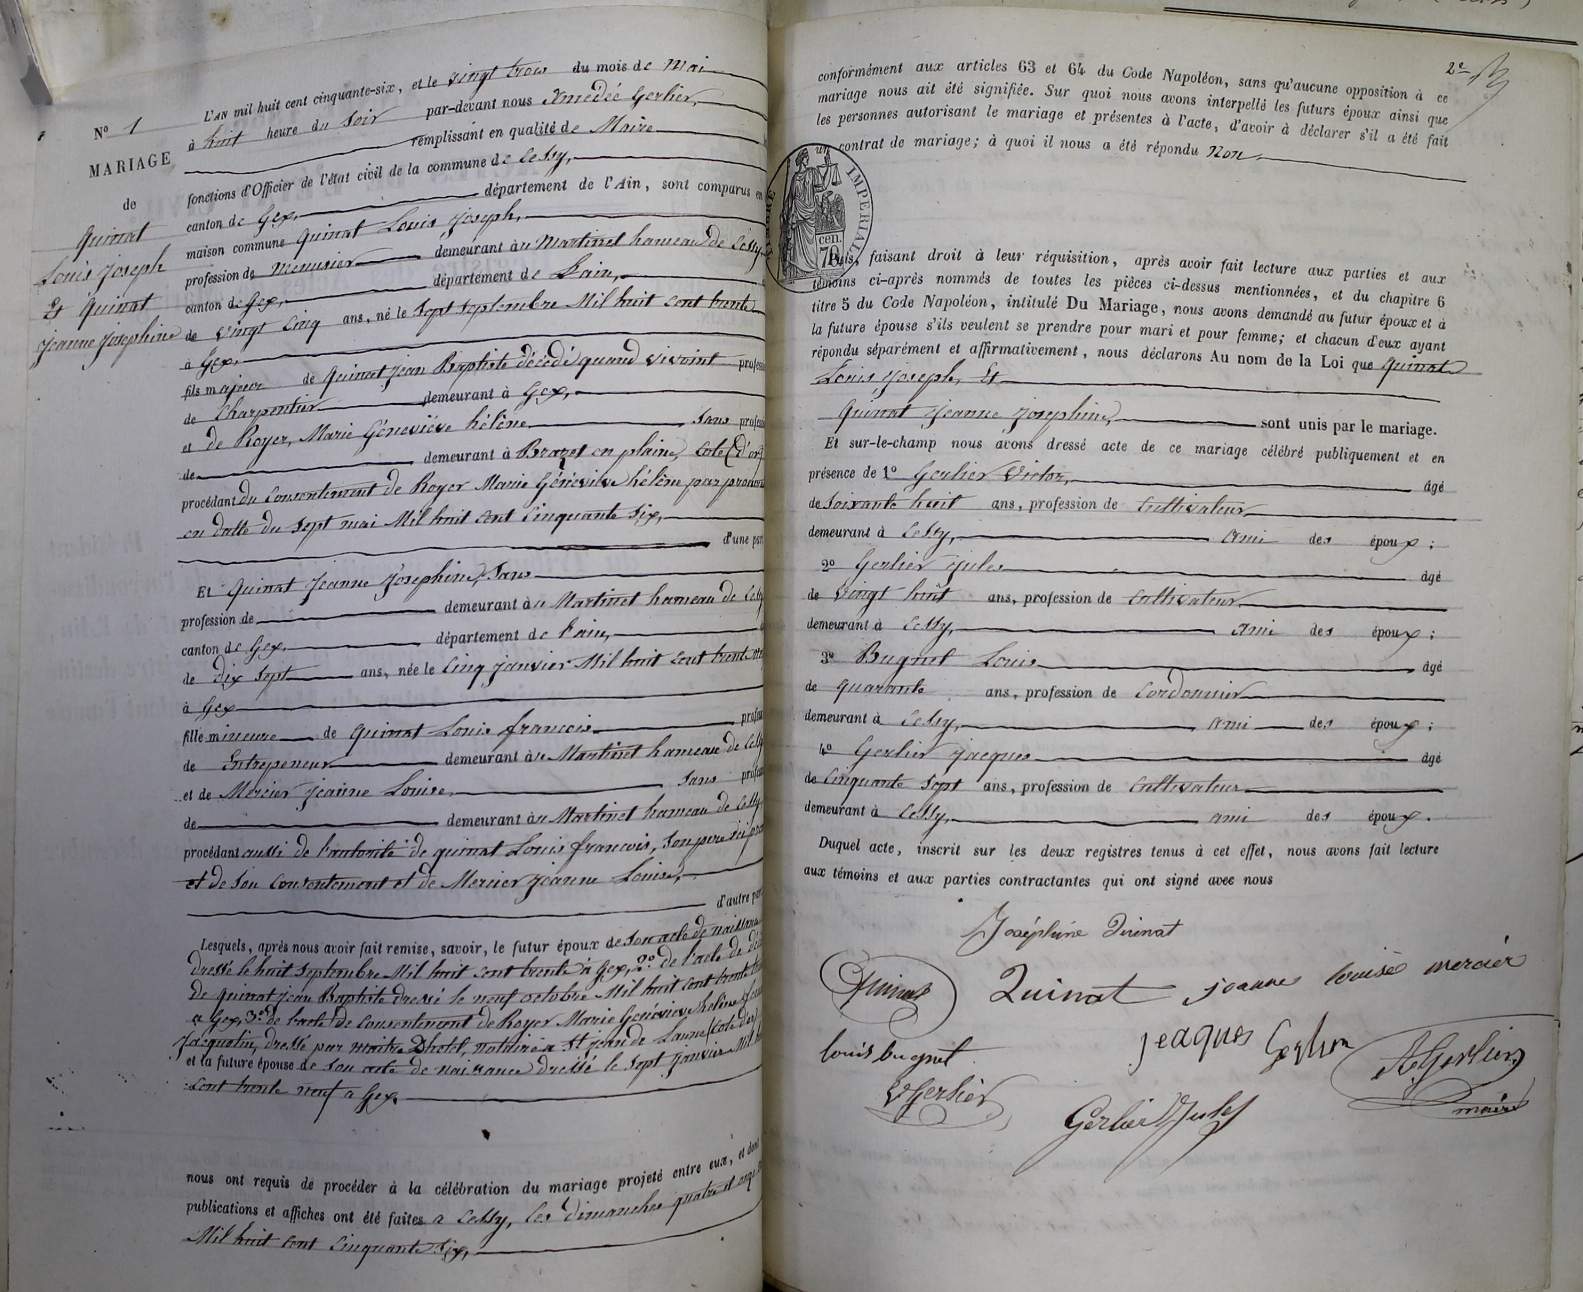 L'AN mil huit cent cinquante-six, et le vingt trois du mois de Mai
No 1
à huit heure du Soir par-devant nous Amédée Gerlier,
MARIAGE
remplissant en qualité de Maire
de
fonctions d'Officier de l'état civil de la commune de Cessy,
canton de Gex, département de l'Ain, sont comparus en
Quinat
maison commune Quinat Louis Joseph,
Louis Joseph
profession de Menusier demeurant au Martinet hameau de Cessy
Et Quinat
canton de Gex, département de L'ain,
Jeanne Josephine
de vingt Cinq ans, né le Sept Septembre Mil huit cent trente
à Gex,
fils majeur de Quinat Jean Baptiste décédé quand vivoint profess
de Charpentier demeurant à Gex,
et de Royer, Marie Géneviève hélène Sans profess
de demeurant à Brazet en plaine, Cote (d'or)
procédant du Consentement de Royer Marie Géneviève hélène par procura
en datte du Sept mai Mil huit cent Cinquante Six,
d'une par
Et Quinat Jeanne Josephine, Sans
profession de demeurant au Martinet hameau de Cessy
canton de Gex, département de L'ain,
de Dix Sept ans, née le Cinq Janvier Mil huit cent trente
à Gex
fille mineure de Quinat Louis francois profess
de Entrepeneur demeurant au Martinet hameau de Cessy
et de Mercier Jeanne Louise, Sans profess
de demeurant au Martinet hameau de Cessy
procédant aussi de l'autorité de quinat Louis francois, Son pere ici
et de Son Consentement et de Mercier Jeanne Louise,
d'autre par
Lesquels, après nous avoir fait remise, savoir, le futur époux de Son acte de naissance
dressé le huit Septembre Mil huit cent trente à Gex, 2o de l'acte de décè
de quinat Jean Baptiste dressé le neuf octobre Mil huit cent trente
a Gex, 3o de l'acte de Consentement de Royer Marie Géneviève hélène
Jacquelin, dressé par maitre notaire a St jean de Laune (Cote d'or)
et la future épouse de Son acte de naissance dressé le Sept Janvier Mil h
Cent trente neuf a Gex,
nous ont requis de procéder à la célébration du mariage projeté entre eux, et dont
publications et affiches ont été faites a Cessy, les dimanches quatre et onze
Mil huit cent Cinquante Six,
2e
conformément aux articles 63 et 64 du Code Napoléon, sans qu'aucune opposition à ce
mariage nous ait été signifiée. Sur quoi nous avons interpellé les futurs époux ainsi que
les personnes autorisant le mariage et présentes à l'acte, d'avoir à déclarer s'il a été fait
un contrat de mariage; à quoi il nous a été répondu Non,
IMPERIAL
cen.
70
Puis, faisant droit à leur réquisition, après avoir fait lecture aux parties et aux
témoins ci-après nommés de toutes les pièces ci-dessus mentionnées, et du chapitre 6
titre 5 du Code Napoléon, intitulé Du Mariage, nous avons demandé au futur époux et à
la future épouse s'ils veulent se prendre pour mari et pour femme; et chacun d'eux ayant
répondu séparément et affirmativement, nous déclarons Au nom de la Loi que Quinat
Louis Joseph, Et
Quinat Jeanne Josephine, sont unis par le mariage.
Et sur-le-champ nous avons dressé acte de ce mariage célébré publiquement et en
présence de 1o Gerlier Victor, âgé
de Soixante huit ans, profession de Cultivateur
demeurant à Cessy, ami des époux;
2o Gerlier Jules âgé
de Vingt huit ans, profession de Cultivateur
demeurant à Cessy, ami des époux;
3o Bugnet Louis âgé
de quarante ans, profession de Cordonnier
demeurant à Cessy, ami des époux;
4o Gerlier Jacques âgé
de Cinquante Sept ans, profession de Cultivateur
demeurant à Cessy, ami des époux.
Duquel acte, inscrit sur les deux registres tenus à cet effet, nous avons fait lecture
aux témoins et aux parties contractantes qui ont signé avec nous
Joséphine Quinat
Quinat
Quinat jeanne louise mercier
louis bugnet
jeaques Gerlier
AGerlier
maire
VGerlier
Gerlier Jules